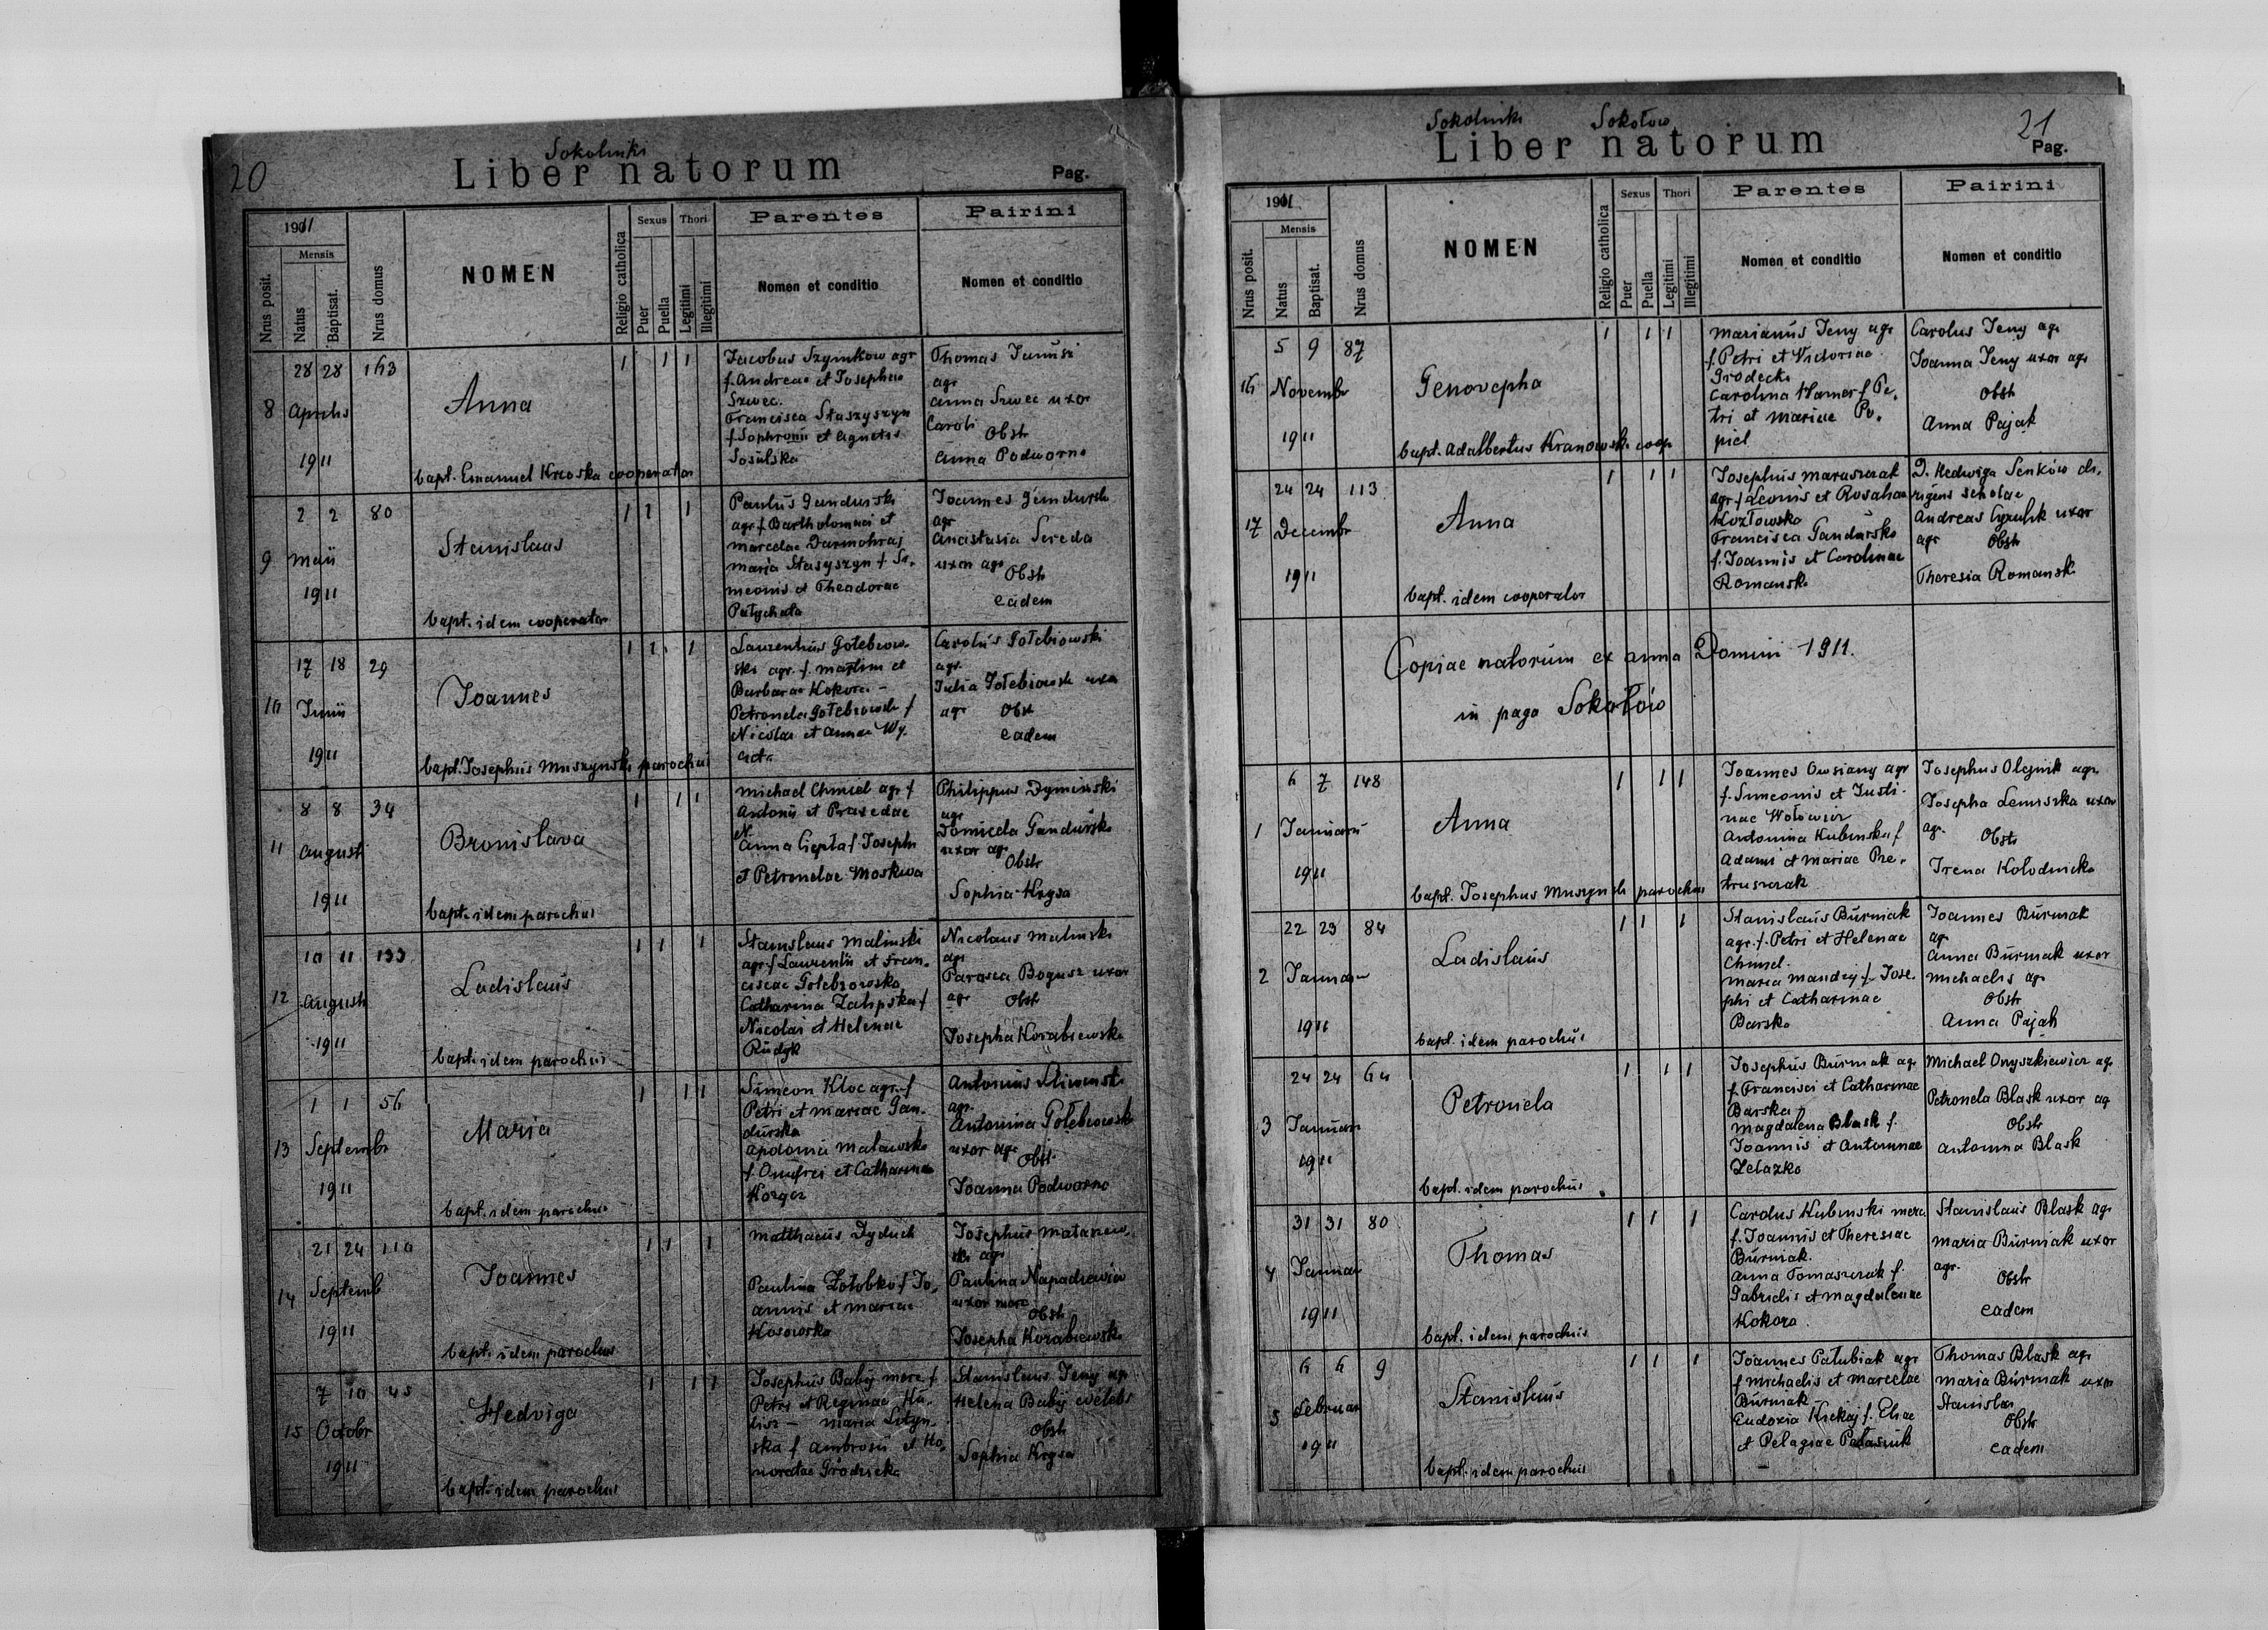 20
Sokolniki
Liber natorum
Pag.
1911
Nrus posit.
Mensis
Natus
Baptisat.
Nrus domus
NOMEN
Religio catholica
Sexus
Puer
Puella
Thori
Legitimi
Illegitimi
Parentes
Nomen et conditio
Pairini
Nomen et conditio
8
28 28 163
Aprilis
1911
Anna
bapt. Emanuel Krzoska cooperator
1 1 1
Jacobus Szymkow agr
f. Andreae et Josephae
Szwec.
Francisca Staszyszyn
f. Sophronii et Agnetis
Sosulska
Thomas Janusz
agr
Anna Szwec uxor
Caroli
Obstr
Anna Podworna
9
2 2 80
Maii
1911
Stanislaus
bapt. idem cooperator
1 1 1
Paulus Gandurski
agr. f. Bartholomaei et
Marcelae Darmohraj
Maria Stasyszyn f. Si-
meonis et Theodorae
Patychata
Joannes Gandurski
agr
Anastasia Sereda
uxor agr
Obstr
eadem
10
17 18 29
Junii
1911
Joannes
bapt. Josephus Muszynski parochus
1 1 1
Laurentius Gołebiow-
ski agr. f. Martini et
Barbarae Kokora -
Petronela Gołebiowska f
Nicolai et Annae Wy-
Carolus Gołebiowski
agr.
Julia Gołebiowska uxor
agr Obstr
eadem
11
8 8 34
Augusti
1911
Bronislava
bapt. idem parochus
1 1 1
Michael Chmiel agr f
Antonii et Praxedae
N.
Anna Ciepła f. Josephi
et Petronelae Moskwa
Philippus Dyminski
agr
Domicela Gandurska
uxor agr
Obstr
Sophia Krysa
12
10 11 133
Augusti
1911
Ladislaus
bapt. idem parochus
1 1 1
Stanislaus Malinski
agr. f Laurentii et Fran-
ciscae Gołebiowska
Catharina Zalipska f
Nicolai et Helenae
Rudyk
Nicolaus Malinski
agr
Parasca Bogusz uxor
agr Obstr
Josepha Korabiewska
13
1 1 56
Septembr
1911
Maria
bapt. idem parochus
1 1 1
Simeon Kloc agr. f
Petri et Mariae Gan-
durska
Apolonia Malawska
f. Onufrei et Catharinae
Korger
Antonius Sliwinski
agr.
Antonina Gołebiowska
uxor agr
Obst.
Joanna Podworna
14
21 24 110
Septemb
1911
Joannes
bapt. idem parochus
1 1 1
Matthaeus Dyduch
Paulina Zołobko f Jo-
annis et Mariae
Kosowska
Josephus Matanow-
ski agr
Paulina Napadiewicz
uxor merc
Obstr
Josepha Korabiewska
15
7 10 45
Octobr
1911
Hedviga
bapt. idem parochus
1 1 1
Josephus Babij merc f
Petri et Reginae Ha-
lisz - Maria Lityn-
ska f Ambrosii et Ho-
noratae Grodzicka
Stanislaus Jeny agr
Helena Babij coelebs
Obstr
Sophia Krysa
Sokolniki Sokołow
21
Liber natorum
Pag.
1911
Nrus posit.
Mensis
Natus
Baptisat.
Nrus domus
NOMEN
Religio catholica
Sexus
Puer
Puella
Thori
Legitimi
Illegitimi
Parentes
Nomen et conditio
Pairini
Nomen et conditio
16
5 9 87
Novembr
1911
Genovepha
bapt. Adalbertus Kranowski coop
1 1 1
Marianus Jeny agr
f. Petri et Victoriae
Grodecka
Carolina Hamor f Pe-
tri et Mariae Po-
piel
Carolus Jeny agr
Joanna Jeny uxor agr
Obstr
Anna Pająk
17
24 24 113
Decembr
1911
Anna
bapt. idem cooperator
1 1 1
Josephus Maruszczak
agr. f Leonis et Rosaliae
Kozłowska
Francisca Gandurska
f. Joannis et Carolinae
Romanska
D. Hedwiga Senków di-
rigens scholae
Andreas Cyrulik uxor
agr Obstr
Theresia Romanska
Copiae natorum ex anno Domini 1911.
in pago Sokołów
1
6 7 148
Januarii
1911
Anna
bapt. Josephus Muszynski parochus
1 1 1
Joannes Owsiany agr
f. Simeonis et Justi-
nae Wołowicz
Antonina Kubinska f
Adami et Mariae Pie-
truszczak
Josephus Olejnik agr
Josepha Lemiszka uxor
agr.
Obstr
Irena Kolodnicka
2
22 23 84
Januar
1911
Ladislaus
bapt. idem parochus
1 1 1
Stanislaus Burniak
agr. f. Petri et Helenae
Chmiel.
Maria Mandzij f. Jose-
phi et Catharinae
Barska
Joannes Burniak
agr
Anna Burniak uxor
Michaelis agr
Obstr
Anna Pająk
3
24 24 64
Januar
1911
Petronela
bapt. idem parochus
1 1 1
Josephus Burniak agr
f. Francisci et Catharinae
Barska
Magdalena Blask f.
Joannis et Antoninae
Zelazko
Michael Onyszkiewicz agr
Petronela Blask uxor agr
Obstr
Antonina Blask
4
31 31 80
Januar
1911
Thomas
bapt. idem parochus
1 1 1
Carolus Kubinski merc.
f. Joannis et Theresiae
Burniak.
Anna Tomaszczak f.
Gabrielis et Magdalenae
Kokora.
Stanislaus Blask agr
Maria Burniak uxor
agr.
Obstr
eadem
5
6 6 9
Februar
1911
Stanislaus
bapt. idem parochus
1 1 1
Joannes Patubiak agr
f Michaelis et Marcelae
Burniak
Eudoxia Kickaj f. Eliae
et Pelagiae Palasiuk
Thomas Blask agr
Maria Burniak uxor
Stanislai
Obstr
eadem